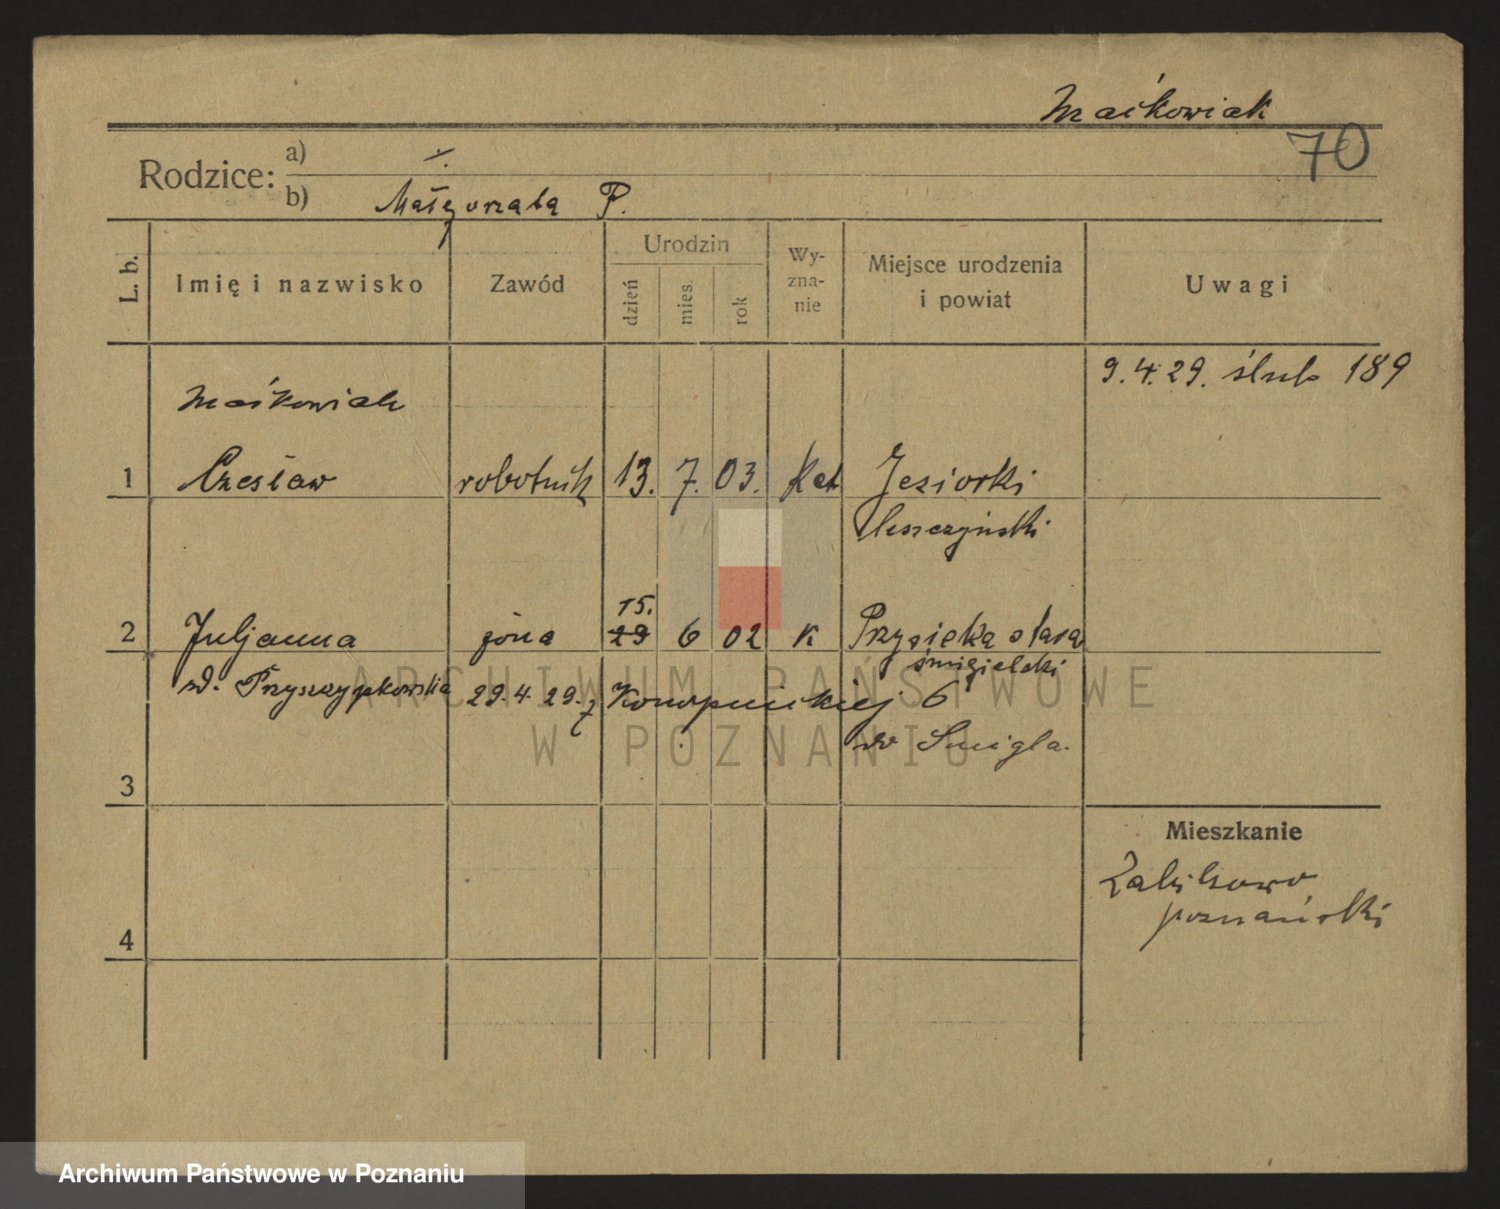 Maćkowiak
70
Rodzice:
a) ·/·
b) Małgorzata P.
L. b.
Imię i nazwisko
Zawód
Urodzin
dzień
mies.
rok
Wy-
zna-
nie
Miejsce urodzenia
i powiat
Uwagi
9.4.29. ślub 189
Maćkowiak
1 Czesław robotnik 13. 7. 03. Kat Jeziorki
leszczyński
15.
2 Juljanna żona 29 6 02 K Przysieka stara
śmigielski
zd. Przyszczypkowska 29.4.29. z Konopnickiej 6
do Śmigla.
3
Mieszkanie
Żabikowo
poznański
4
ARCHIWUM PAŃSTWOWE
W POZNANIU
Archiwum Państwowe w Poznaniu